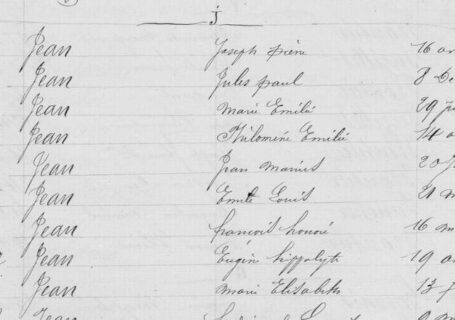 j
Jean Joseph pierre 16 
Jean Jules paul 8 
Jean marie Emilie 29 
Jean Philomène Emilie 14 
Jean Jean marius 20 
Jean Emile Louis 21 
Jean francois honoré 16 
Jean Eugène hippolyte 19 
Jean marie Elisabeth 13 
Jean